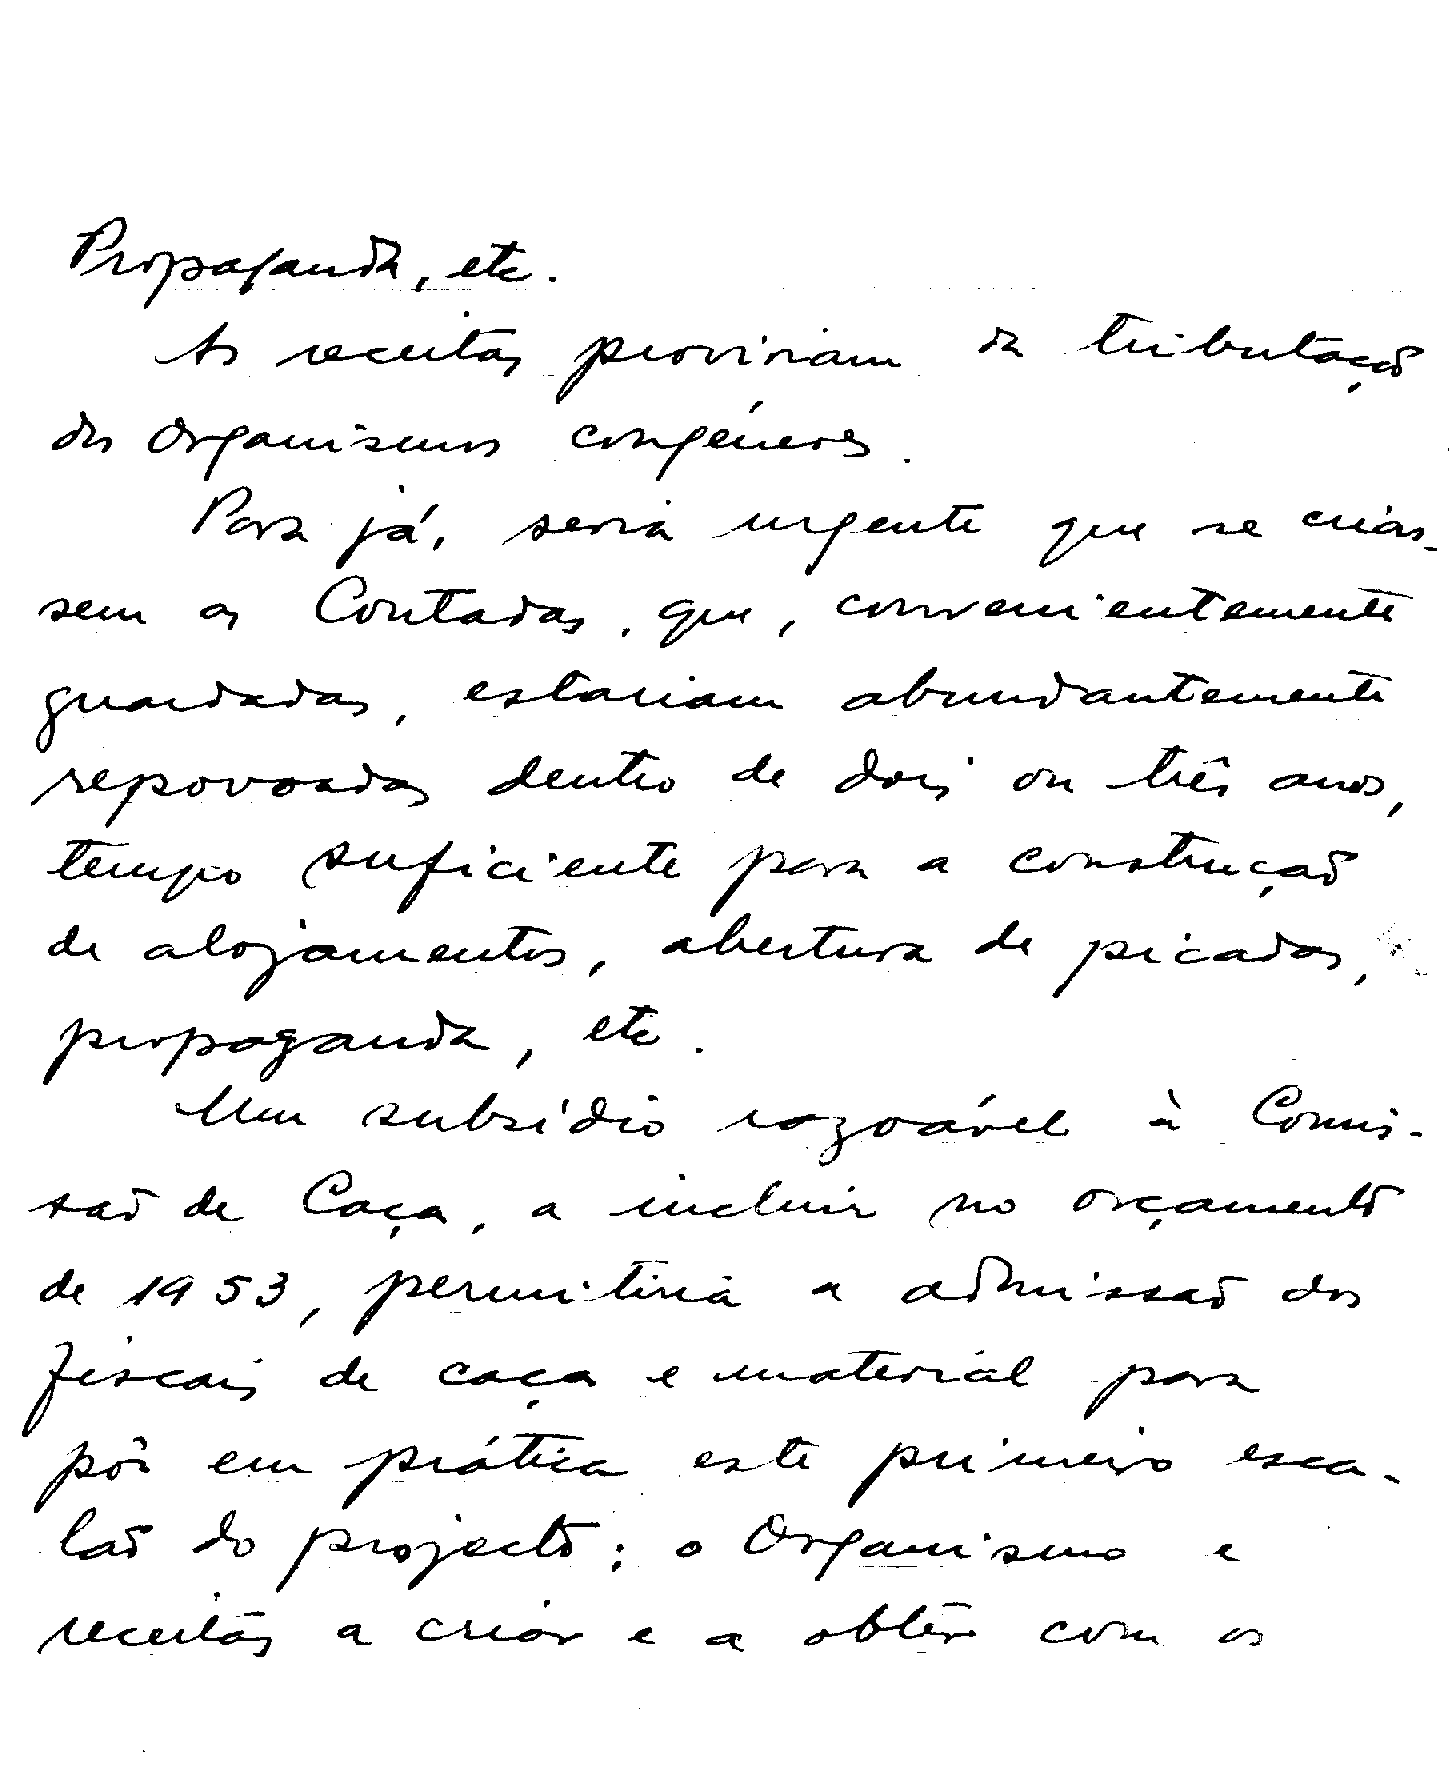 Propaganda, etc.
As receitas proviriam da tributação
dos Organismos congéneres.
Para já, seria urgente que se crias-
sem as Coutadas, que, convenientemente
guardadas, estariam abundantemente
repovoadas dentro de dois ou três anos,
tempo suficiente para a construção
de alojamentos, abertura de picadas,
propaganda, etc.
Um subsídio razoável à Comis-
são de Caça, a incluir no orçamento
de 1953, permitiria a admissão dos
fiscais de caça e material para
pôr em prática este primeiro esca-
lão do projecto; o Organismo e
receitas a criar e a obter com os